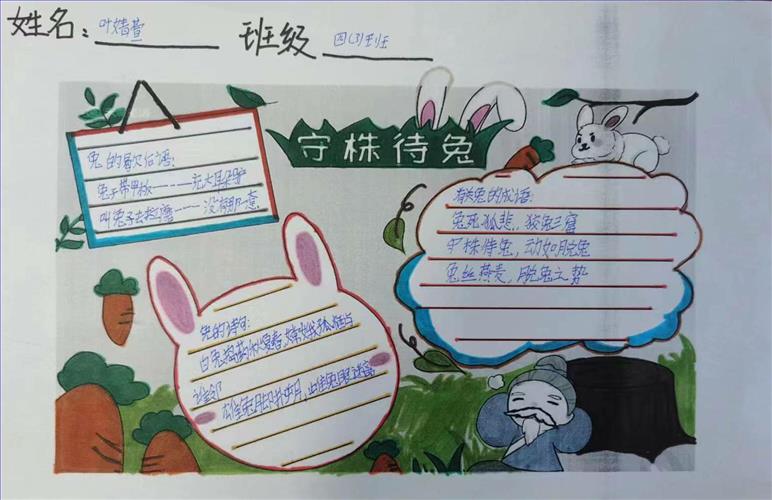 姓名: 叶婧萱 班级 四(3)班
守株待兔
兔的歇后语:
兔子带甲板——充大耳朵驴
叫兔子去拉磨——没有那一意
有关兔的成语:
兔死狐悲,狡兔三窟
守株待兔,动如脱兔
兔丝燕麦,脱兔之势
兔的诗句:
白兔捣药秋复春,嫦娥孤栖与
谁邻
雄兔脚扑朔,雌兔眼迷离